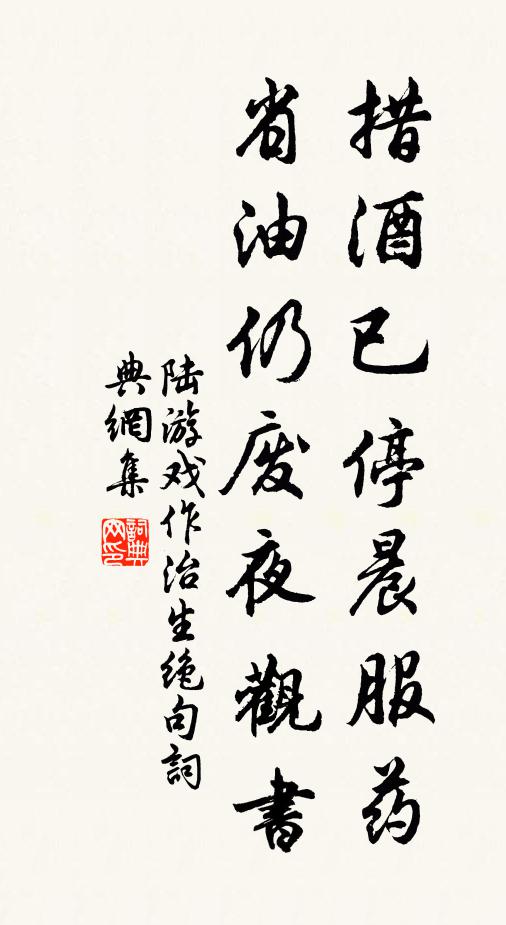 措酒已停晨服药
省油仍废夜觀書
陆游戏作治生绝句詞
典網集
詞典网印